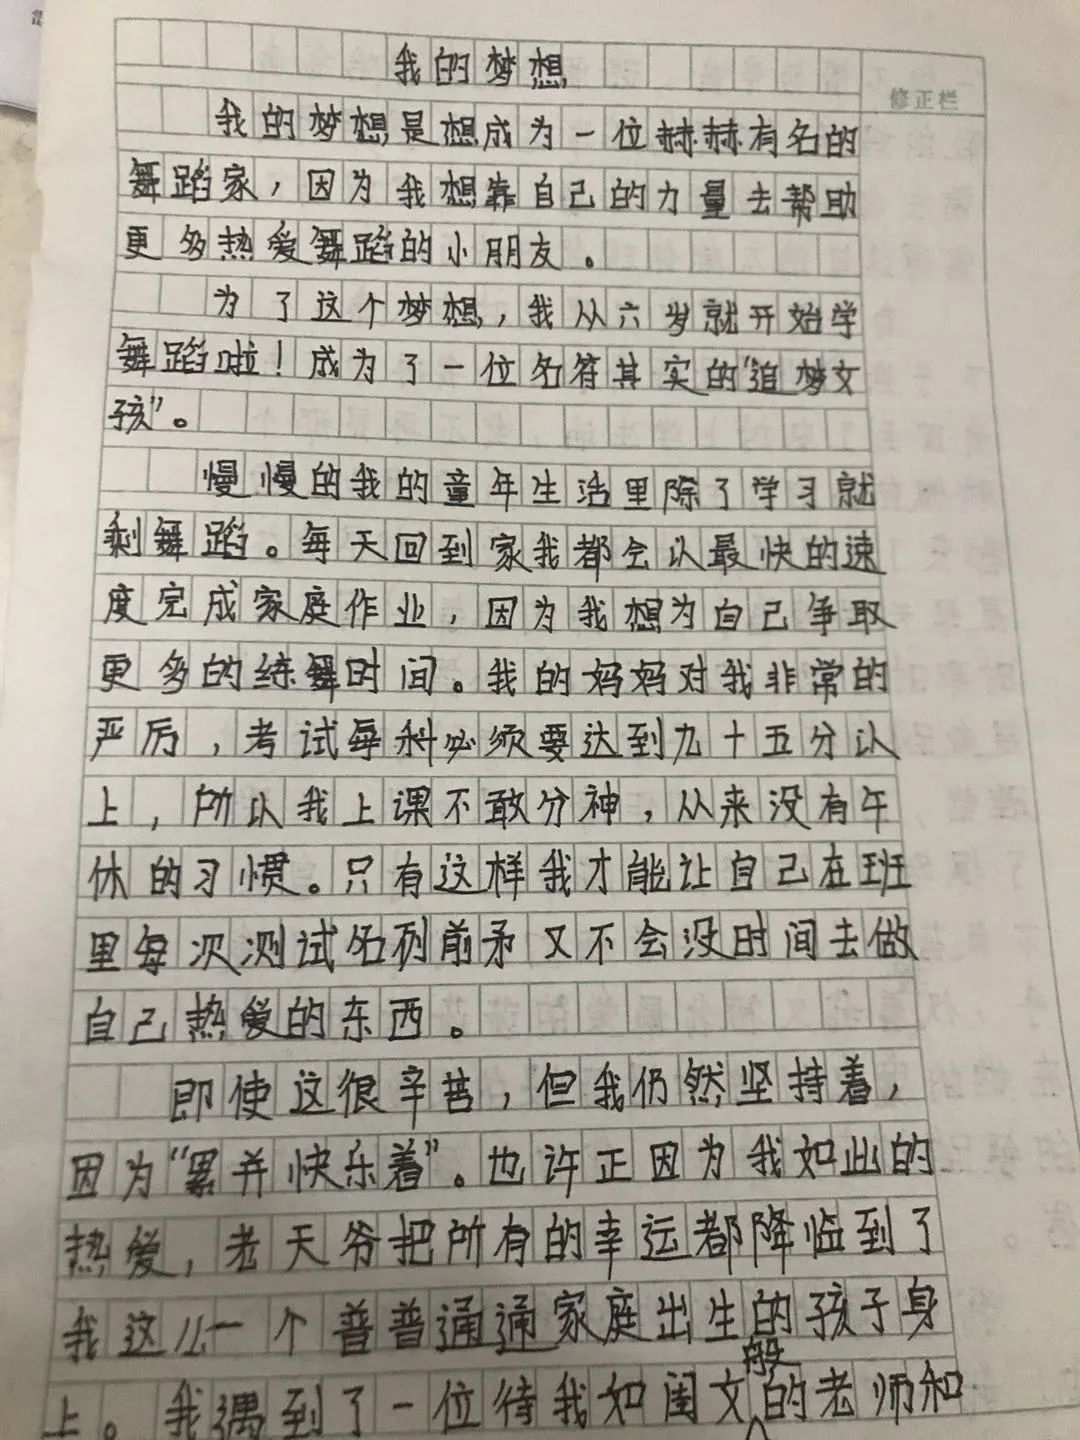 我的梦想
修正栏
我的梦想是想成为一位赫赫有名的
舞蹈家，因为我想靠自己的力量去帮助
更多热爱舞蹈的小朋友。
为了这个梦想，我从六岁就开始学
舞蹈啦！成为了一位名符其实的“追梦女
孩”。
慢慢的我的童年生活里除了学习就
剩舞蹈。每天回到家我都会以最快的速
度完成家庭作业，因为我想为自己争取
更多的练舞时间。我的妈妈对我非常的
严厉，考试每科必须要达到九十五分以
上，所以我上课不敢分神，从来没有午
休的习惯。只有这样我才能让自己在班
里每次测试名列前矛又不会没时间去做
自己热爱的东西。
即使这很辛苦，但我仍然坚持着，
因为“累并快乐着”。也许正因为我如此的
热爱，老天爷把所有的幸运都降临到了
我这么一个普普通通家庭出生的孩子身
上。我遇到了一位待我如闺女般的老师和